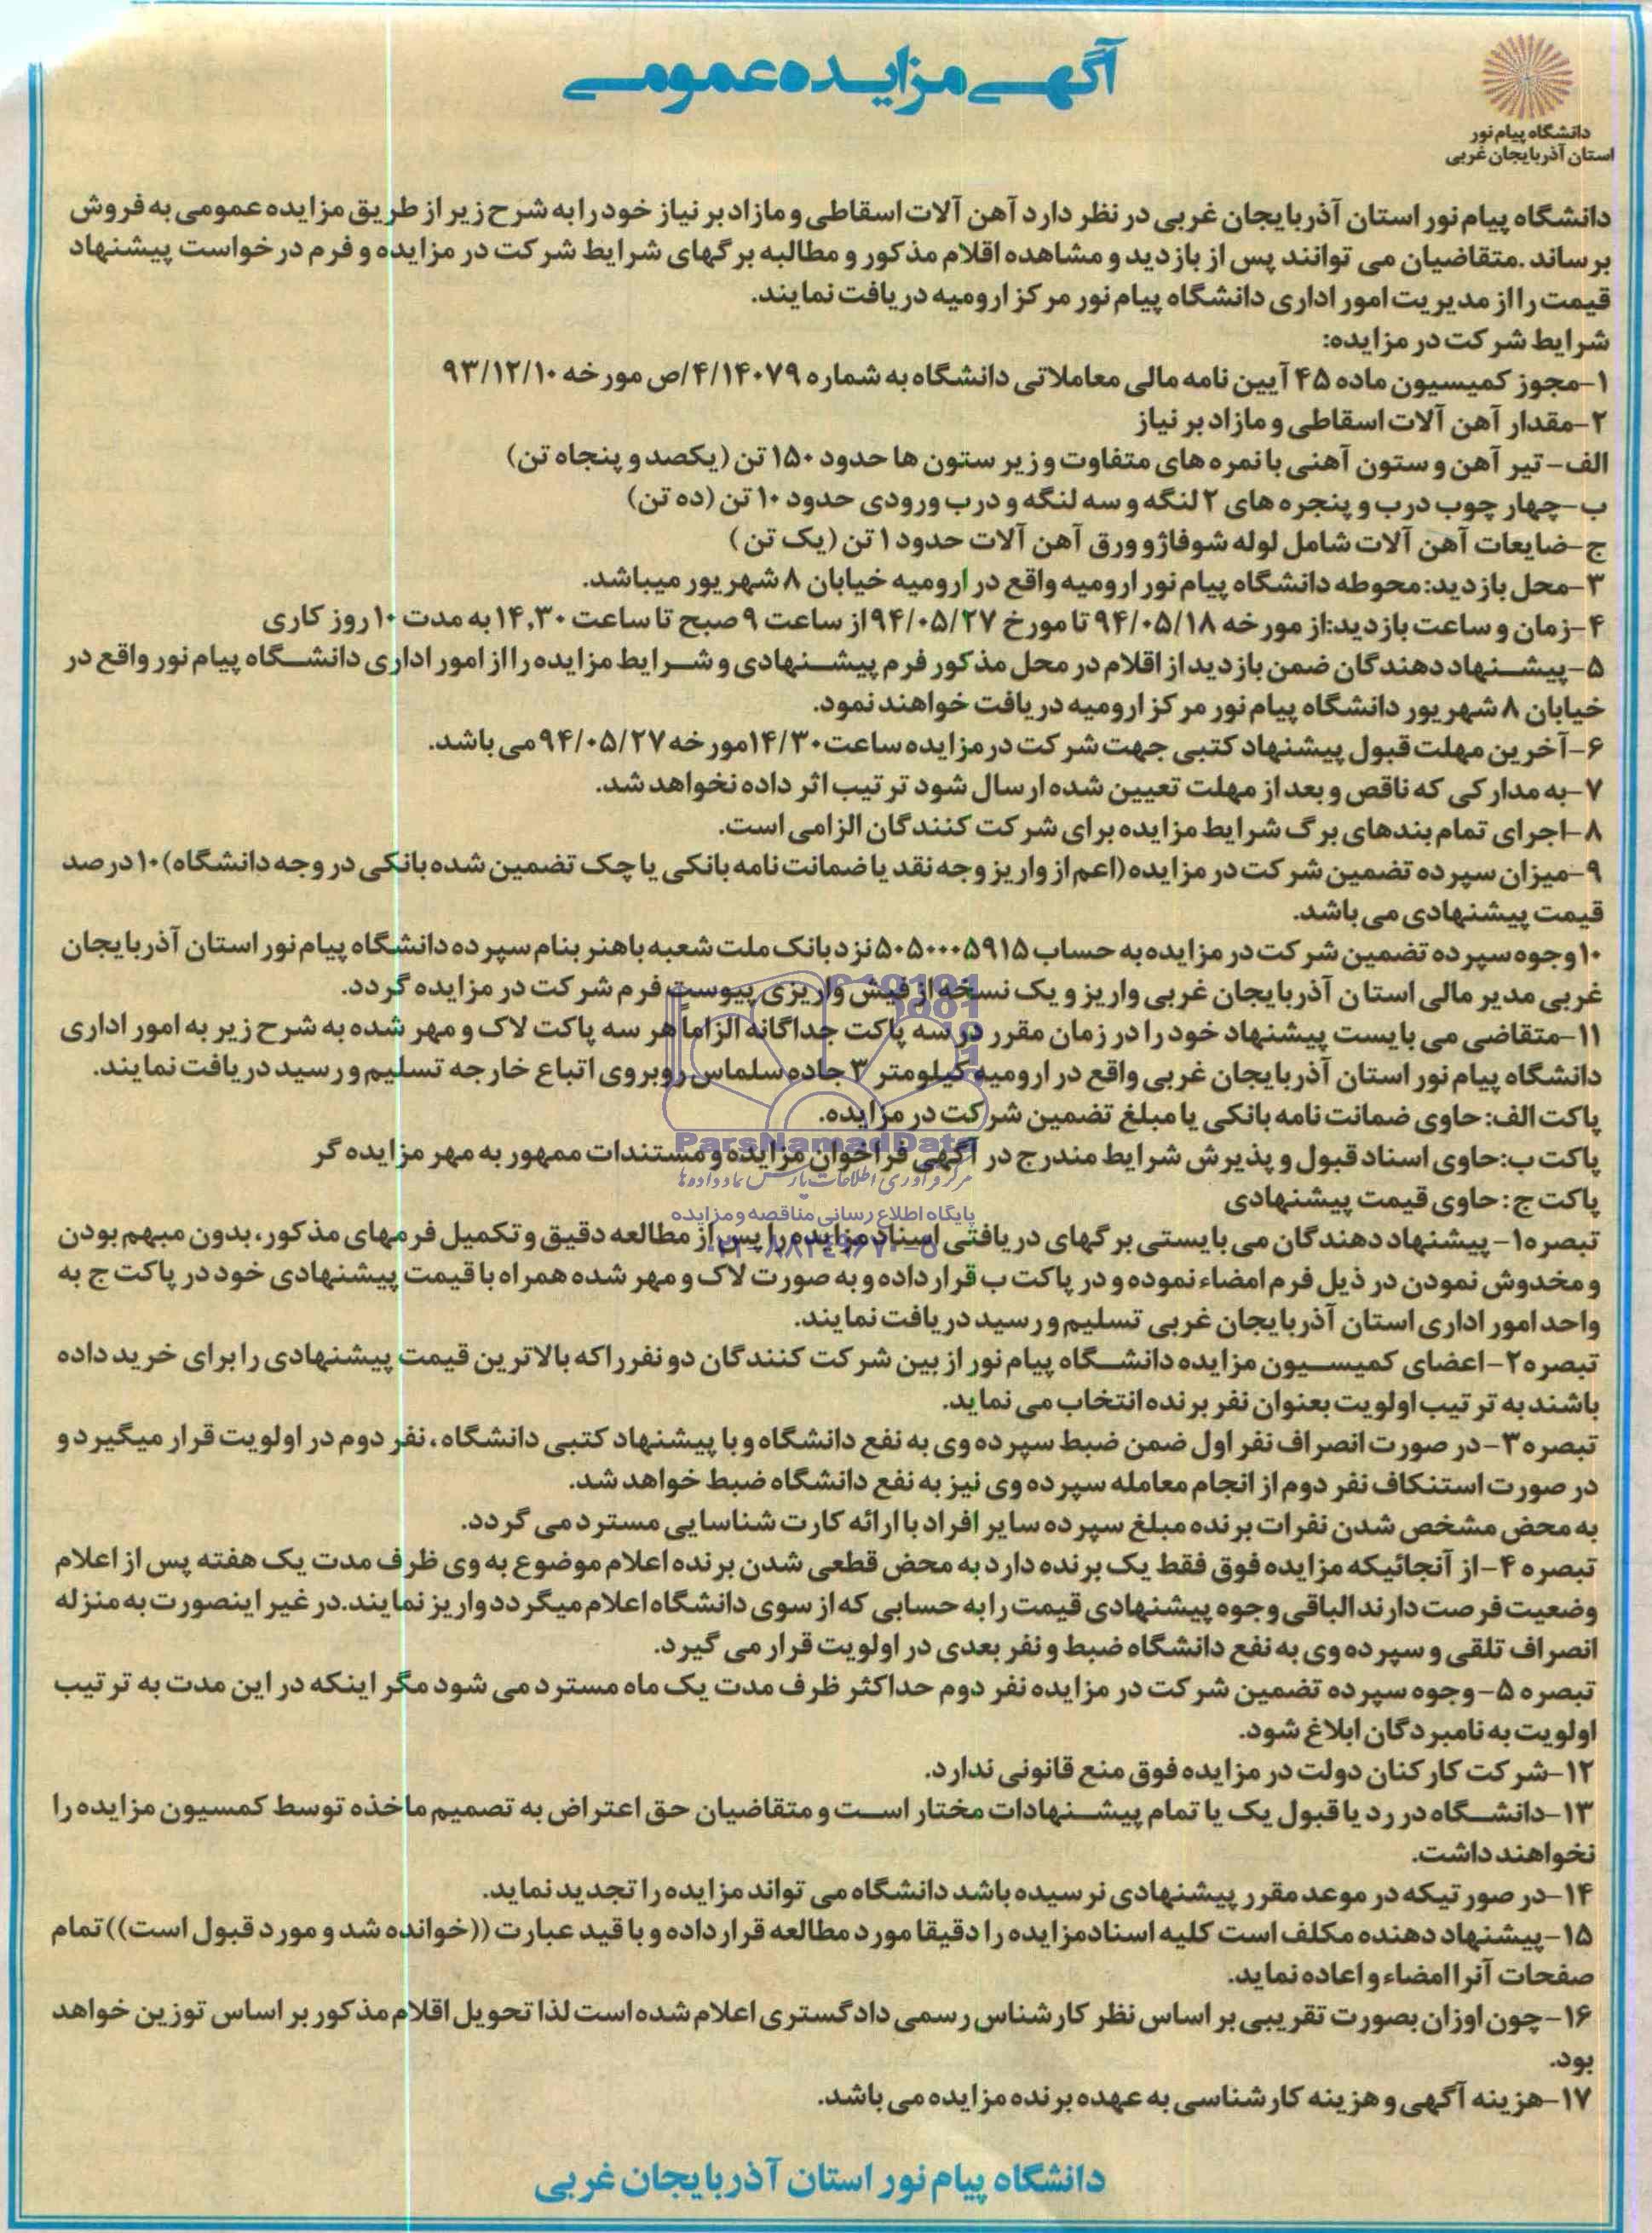 آگهی مزایده عمومی
دانشگاه پیام نور
استان آذربایجان غربی
دانشگاه پیام نور استان آذربایجان غربی در نظر دارد آهن آلات اسقاطی و مازاد بر نیاز خود را به شرح زیر از طریق مزایده عمومی به فروش
برساند .متقاضیان می توانند پس از بازدید و مشاهده اقلام مذکور و مطالبه برگهای شرایط شرکت در مزایده و فرم درخواست پیشنهاد
قیمت را از مدیریت امور اداری دانشگاه پیام نور مرکز ارومیه دریافت نمایند.
شرایط شرکت در مزایده:
۱-مجوز کمیسیون ماده ۴۵ آیین نامه مالی معاملاتی دانشگاه به شماره ۴/۱۴۰۷۹/ص مورخه ۹۳/۱۲/۱۰
۲-مقدار آهن آلات اسقاطی و مازاد بر نیاز
الف- تیر آهن و ستون آهنی با نمره های متفاوت و زیر ستون ها حدود ۱۵۰ تن (یکصد و پنجاه تن)
ب-چهار چوب درب و پنجره های ۲ لنگه و سه لنگه و درب ورودی حدود ۱۰ تن (ده تن)
ج-ضایعات آهن آلات شامل لوله شوفاژ و ورق آهن آلات حدود ۱ تن (یک تن )
۳-محل بازدید: محوطه دانشگاه پیام نور ارومیه واقع در ارومیه خیابان ۸ شهریور میباشد.
۴-زمان و ساعت بازدید:از مورخه ۹۴/۰۵/۱۸ تا مورخ ۹۴/۰۵/۲۷ از ساعت ۹ صبح تا ساعت ۱۴,۳۰ به مدت ۱۰ روز کاری
۵-پیشنهاد دهندگان ضمن بازدید از اقلام در محل مذکور فرم پیشنهادی و شرایط مزایده را از امور اداری دانشگاه پیام نور واقع در
خیابان ۸ شهریور دانشگاه پیام نور مرکز ارومیه دریافت خواهند نمود.
۶-آخرین مهلت قبول پیشنهاد کتبی جهت شرکت در مزایده ساعت ۱۴/۳۰ مورخه ۹۴/۰۵/۲۷ می باشد.
۷-به مدارکی که ناقص و بعد از مهلت تعیین شده ارسال شود ترتیب اثر داده نخواهد شد.
۸-اجرای تمام بندهای برگ شرایط مزایده برای شرکت کنندگان الزامی است.
۹-میزان سپرده تضمین شرکت در مزایده (اعم از واریز وجه نقد یا ضمانت نامه بانکی یا چک تضمین شده بانکی در وجه دانشگاه) ۱۰ درصد
قیمت پیشنهادی می باشد.
۱۰ وجوه سپرده تضمین شرکت در مزایده به حساب ۵۰۵۰۰۰۵۹۱۵ نزد بانک ملت شعبه باهنر بنام سپرده دانشگاه پیام نور استان آذربایجان
غربی مدیر مالی استان آذربایجان غربی واریز و یک نسخه از فیش واریزی پیوست فرم شرکت در مزایده گردد.
۱۱-متقاضی می بایست پیشنهاد خود را در زمان مقرر در سه پاکت جداگانه الزاماً هر سه پاکت لاک و مهر شده به شرح زیر به امور اداری
دانشگاه پیام نور استان آذربایجان غربی واقع در ارومیه کیلومتر ۳ جاده سلماس روبروی اتباع خارجه تسلیم و رسید دریافت نمایند.
پاکت الف: حاوی ضمانت نامه بانکی یا مبلغ تضمین شرکت در مزایده.
ParsNamadData
پاکت ب:حاوی اسناد قبول و پذیرش شرایط مندرج در آگهی فراخوان مزایده و مستندات ممهور به مهر مزایده گر
مرکز فرآوری اطلاعات پارس نماد داده ها
پاکت ج: حاوی قیمت پیشنهادی
پایگاه اطلاع رسانی مناقصه و مزایده
تبصره۱- پیشنهاد دهندگان می بایستی برگهای دریافتی اسناد مزایده را پس از مطالعه دقیق و تکمیل فرمهای مذکور، بدون مبهم بودن
و مخدوش نمودن در ذیل فرم امضاء نموده و در پاکت ب قرار داده و به صورت لاک و مهر شده همراه با قیمت پیشنهادی خود در پاکت ج به
واحد امور اداری استان آذربایجان غربی تسلیم و رسید دریافت نمایند.
تبصره۲-اعضای کمیسیون مزایده دانشگاه پیام نور از بین شرکت کنندگان دو نفر را که بالاترین قیمت پیشنهادی را برای خرید داده
باشند به ترتیب اولویت بعنوان نفر برنده انتخاب می نماید.
تبصره۳-در صورت انصراف نفر اول ضمن ضبط سپرده وی به نفع دانشگاه و با پیشنهاد کتبی دانشگاه، نفر دوم در اولویت قرار میگیرد و
در صورت استنکاف نفر دوم از انجام معامله سپرده وی نیز به نفع دانشگاه ضبط خواهد شد.
به محض مشخص شدن نفرات برنده مبلغ سپرده سایر افراد با ارائه کارت شناسایی مسترد می گردد.
تبصره ۴-از آنجائیکه مزایده فوق فقط یک برنده دارد به محض قطعی شدن برنده اعلام موضوع به وی ظرف مدت یک هفته پس از اعلام
وضعیت فرصت دارند الباقی وجوه پیشنهادی قیمت را به حسابی که از سوی دانشگاه اعلام میگردد واریز نمایند.در غیر اینصورت به منزله
انصراف تلقی و سپرده وی به نفع دانشگاه ضبط و نفر بعدی در اولویت قرار می گیرد.
تبصره ۵-وجوه سپرده تضمین شرکت در مزایده نفر دوم حداکثر ظرف مدت یک ماه مسترد می شود مگر اینکه در این مدت به ترتیب
اولویت به نامبردگان ابلاغ شود.
۱۲-شرکت کارکنان دولت در مزایده فوق منع قانونی ندارد.
۱۳-دانشگاه در رد یا قبول یک یا تمام پیشنهادات مختار است و متقاضیان حق اعتراض به تصمیم ماخذه توسط کمسیون مزایده را
نخواهند داشت.
۱۴-در صورتیکه در موعد مقرر پیشنهادی نرسیده باشد دانشگاه می تواند مزایده را تجدید نماید.
۱۵-پیشنهاد دهنده مکلف است کلیه اسناد مزایده را دقیقا مورد مطالعه قرار داده و با قید عبارت ((خوانده شد و مورد قبول است)) تمام
صفحات آنرا امضاء و اعاده نماید.
۱۶-چون اوزان بصورت تقریبی بر اساس نظر کارشناس رسمی دادگستری اعلام شده است لذا تحویل اقلام مذکور بر اساس توزین خواهد
بود.
۱۷-هزینه آگهی و هزینه کارشناسی به عهده برنده مزایده می باشد.
دانشگاه پیام نور استان آذربایجان غربی